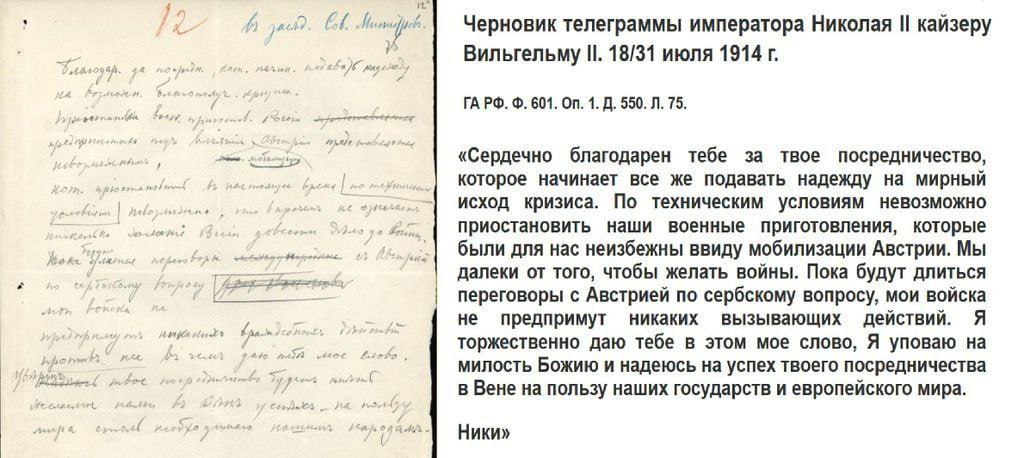 12
12
въ засѣд. Сов. Министровъ.
75
Благодар. за посредн., кот. начин. подавать надежду
на возможн. благополуч. кризиса.
Приостановка воен. приготов. Россіи представляется
предпринятыхъ подъ Австріи представляется
невозможнымъ, мобилизаціи
кот. приостановить въ настоящее время по техническимъ
условіямъ невозможно, что впрочемъ не означаетъ
нисколько желаніе Россіи довести дѣло до войны.
Пока будутъ длятся переговоры международные съ Австріей
по сербскому вопросу
мои войска не
предпримутъ никакихъ враждебныхъ дѣйствій
противъ нее въ чемъ даю тебѣ мое слово.
Увѣренъ твое посредничество будетъ имѣть
желаемый нами въ Вѣнѣ успѣхъ на пользу
мира столь необходимаго нашимъ народамъ.
Черновик телеграммы императора Николая II кайзеру
Вильгельму II. 18/31 июля 1914 г.
ГА РФ. Ф. 601. Оп. 1. Д. 550. Л. 75.
«Сердечно благодарен тебе за твое посредничество,
которое начинает все же подавать надежду на мирный
исход кризиса. По техническим условиям невозможно
приостановить наши военные приготовления, которые
были для нас неизбежны ввиду мобилизации Австрии. Мы
далеки от того, чтобы желать войны. Пока будут длиться
переговоры с Австрией по сербскому вопросу, мои войска
не предпримут никаких вызывающих действий. Я
торжественно даю тебе в этом мое слово, Я уповаю на
милость Божию и надеюсь на успех твоего посредничества
в Вене на пользу наших государств и европейского мира.
Ники»